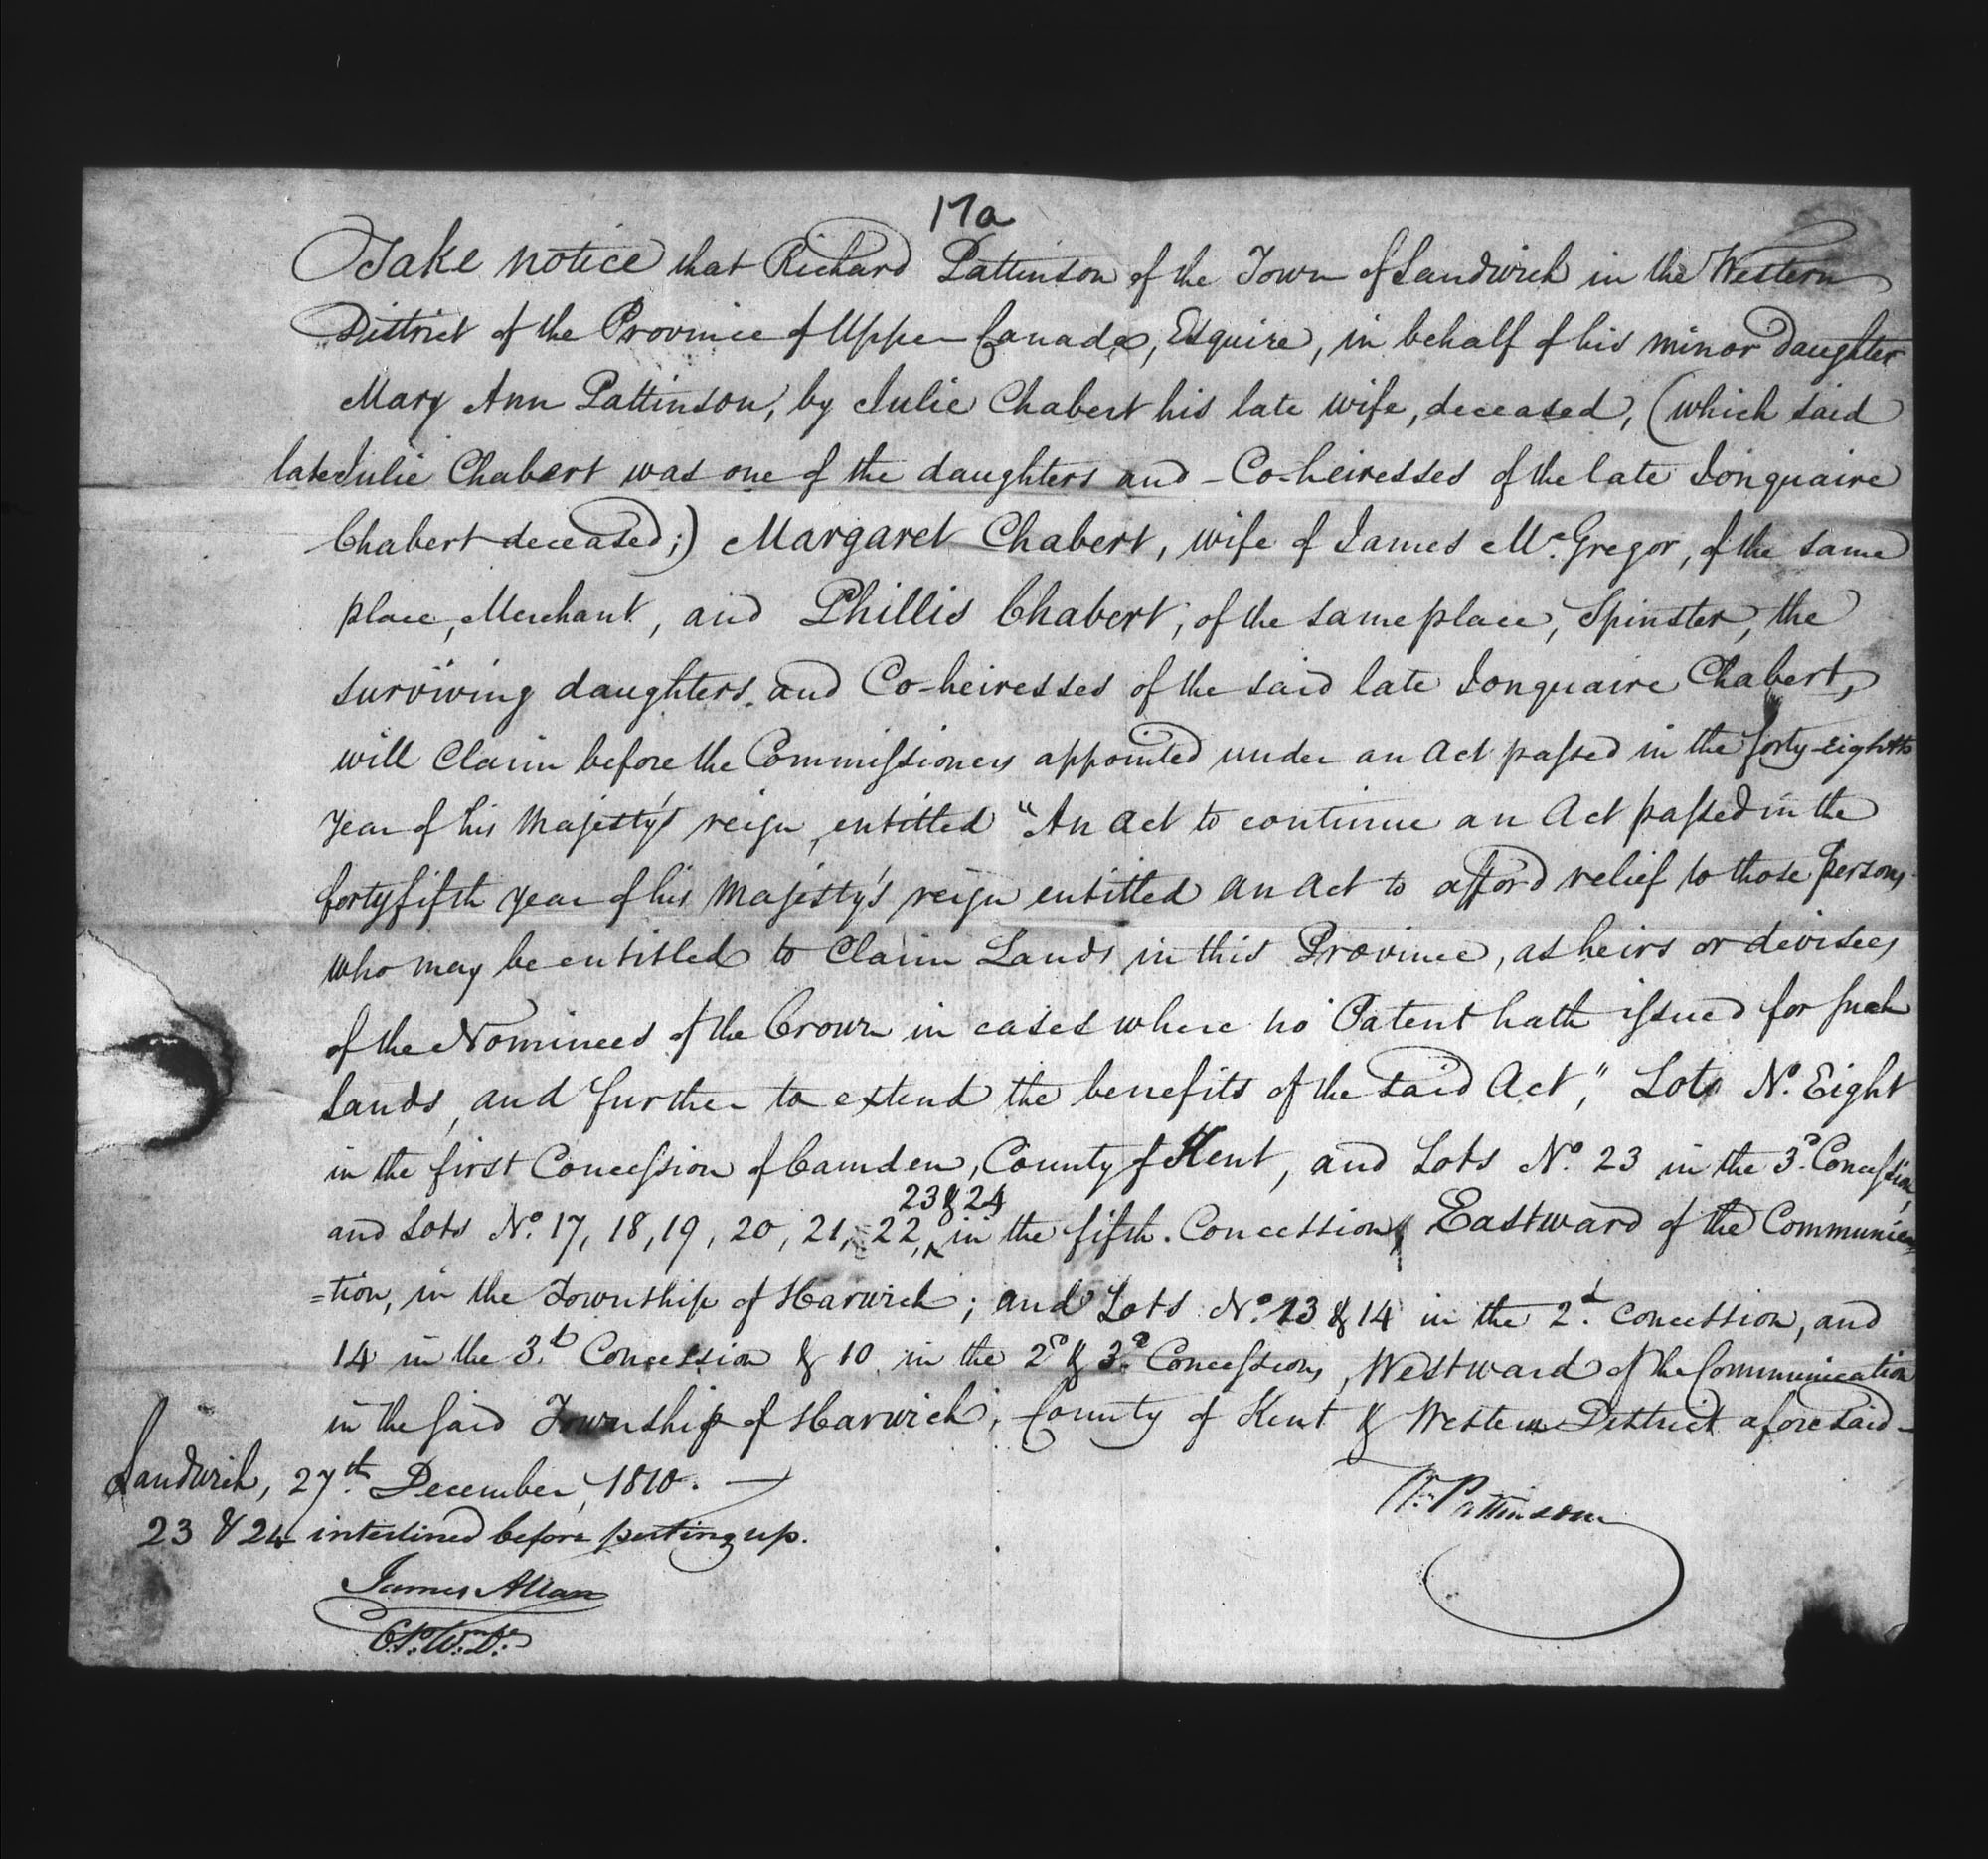 17a
Take notice that Richard Pattinson of the Town of Sandwich in the Western
District of the Province of Upper Canada, Esquire, in behalf of his minor daughter
Mary Ann Pattinson, by Julie Chabert his late wife, deceased, (which said
late Julie Chabert was one of the daughters and Co-heiresses of the late Jonquaire
Chabert deceased;) Margaret Chabert, wife of James McGregor, of the same
place, Merchant, and Phillis Chabert, of the same place, Spinster, the
surviving daughters and Co-heiresses of the said late Jonquaire Chabert,
will Claim before the Commissioners appointed under an Act passed in the forty-eighth
year of his Majesty's reign, entitled "An Act to continue an Act passed in the
forty fifth year of his Majesty's reign entitled An Act to afford relief to those persons
who may be entitled to Claim Lands in this Province, as heirs or devisees
of the Nominees of the Crown in cases where no Patent hath issued for such
Lands, and further to extend the benefits of the said Act," Lots No. Eight
in the first Concession of Camden, County of Kent, and Lots No. 23 in the 3d. Concession,
23 & 24
and Lots No. 17, 18, 19, 20, 21, 22, in the fifth Concession, Eastward of the Communica
=tion, in the Township of Harwich; and Lots No. 13 & 14 in the 2d. Concession, and
14 in the 3d. Concession & 10 in the 2d & 3d. Concessions, Westward of the Communication
in the said Township of Harwich, County of Kent & Western District aforesaid -
Sandwich, 27th. December, 1810. -
Rd. Pattinson
23 & 24 interlined before putting up.
James Allan
C.P.W.D.